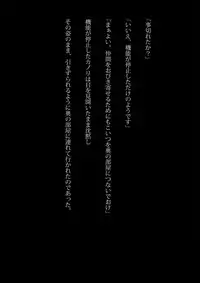 「事切れたか？」
「いいえ、機能が停止しただけのようです」
「まぁよい、仲間をおびき寄せるためにもこいつを奥の部屋につないでおけ」
機能が停止したカノリは目を見開いたまま沈黙し
その姿のまま、引きずられるように奥の部屋に連れて行かれたのであった。